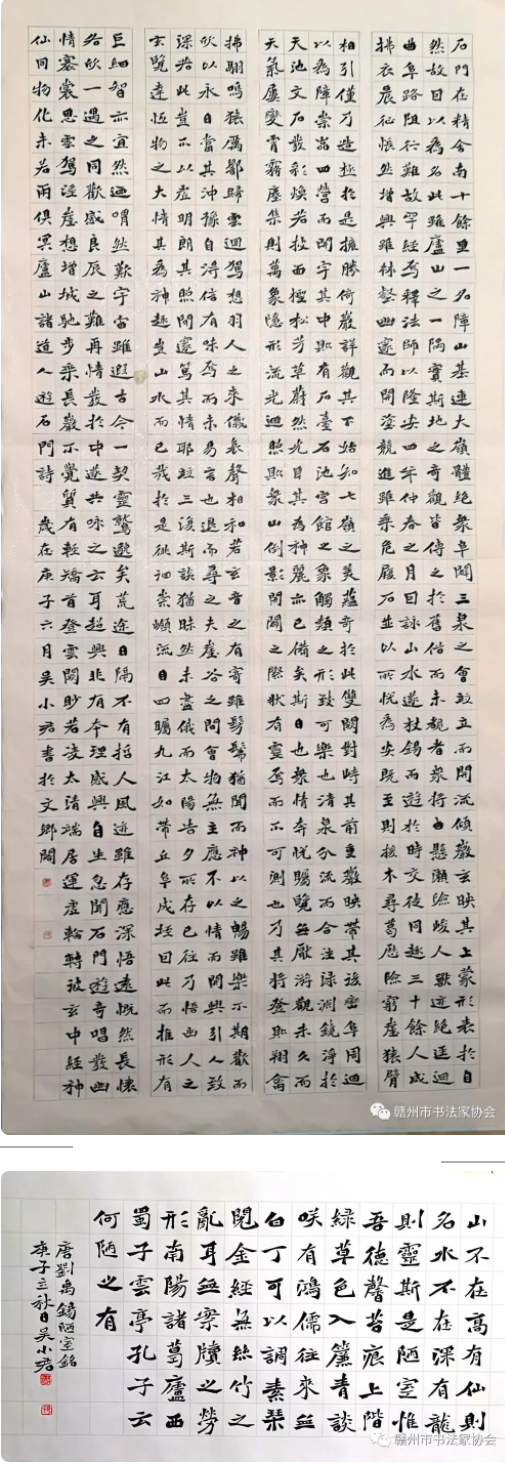 石門在精舍南十餘里一名障山基連大嶺體絕衆阜闢三泉之會並立而開流傾巖玄映其上蒙形表於自
然故因以為名此雖廬山之一隅實斯地之奇觀皆傳之於舊俗而未覩者衆將由懸瀨險峻人獸迹絕逕迴
曲阜路阻行難故罕經焉釋法師以隆安四年仲春之月因詠山水遂杖錫而遊於時交徒同趣三十餘人咸
拂衣晨征悵然增興雖林壑幽邃而開塗競進雖乘危履石並以所悅為安既至則援木尋葛歷險窮崖猿臂
相引僅乃造極於是擁勝倚巖詳觀其下始知七嶺之美蘊奇於此雙闕對峙其前重巖映帶其後巒阜周迴
以為障崇巖四營而開宇其中則有石臺石池宮館之象觸類之形致可樂也清泉分流而合注淥淵鏡淨於
天池文石發彩煥若披面檉松芳草蔚然光目其為神麗亦已備矣斯日也衆情奔悅矚覽無厭游觀未久而
天氣屢變霄霧塵集則萬象隱形流光迴照則衆山倒影開闔之際狀有靈焉而不可測也乃其將登則翔禽
拂翮鳴猿厲響歸雲迴駕想羽人之來儀哀聲相和若玄音之有寄雖髣髴猶聞而神以之暢雖樂不期歡而
欣以永日當其沖豫自得信有味焉而未易言也退而尋之夫崖谷之間會物無主應不以情而開興引人致
深若此豈不以虛明朗其照閒邃篤其情耶並三復斯談猶昧然未盡俄而太陽告夕所存已往乃悟幽人之
玄覽達恆物之大情其為神趣豈山水而已哉於是徘徊崇嶺流目四矚九江如帶丘阜成垤因此而推形有
巨細智亦宜然迺喟然歎宇宙雖遐古今一契靈鷲邈矣荒途日隔不有哲人風迹誰存應深悟遠慨然長懷
各欣一遇之同歡感良辰之難再情發於中遂共咏之云耳超興非有本理感興自生忽聞石門遊奇唱發幽
情褰裳思雲駕望崖想增城馳步乘長巖不覺質有輕矯首登雲闕眇若凌太清端居運虛輪轉彼玄中經神
仙同物化未若兩俱冥廬山諸道人遊石門詩 歲在庚子六月吳小君書於文鄉閣
赣州市书法家协会
山不在高有仙則
名水不在深有龍
則靈斯是陋室惟
吾德馨苔痕上階
綠草色入簾青談
咲有鴻儒往來無
白丁可以調素琴
閱金經無絲竹之
亂耳無案牘之勞
形南陽諸葛廬西
蜀子雲亭孔子云
何陋之有
唐劉禹錫陋室銘
庚子立秋日吳小君
赣州市书法家协会